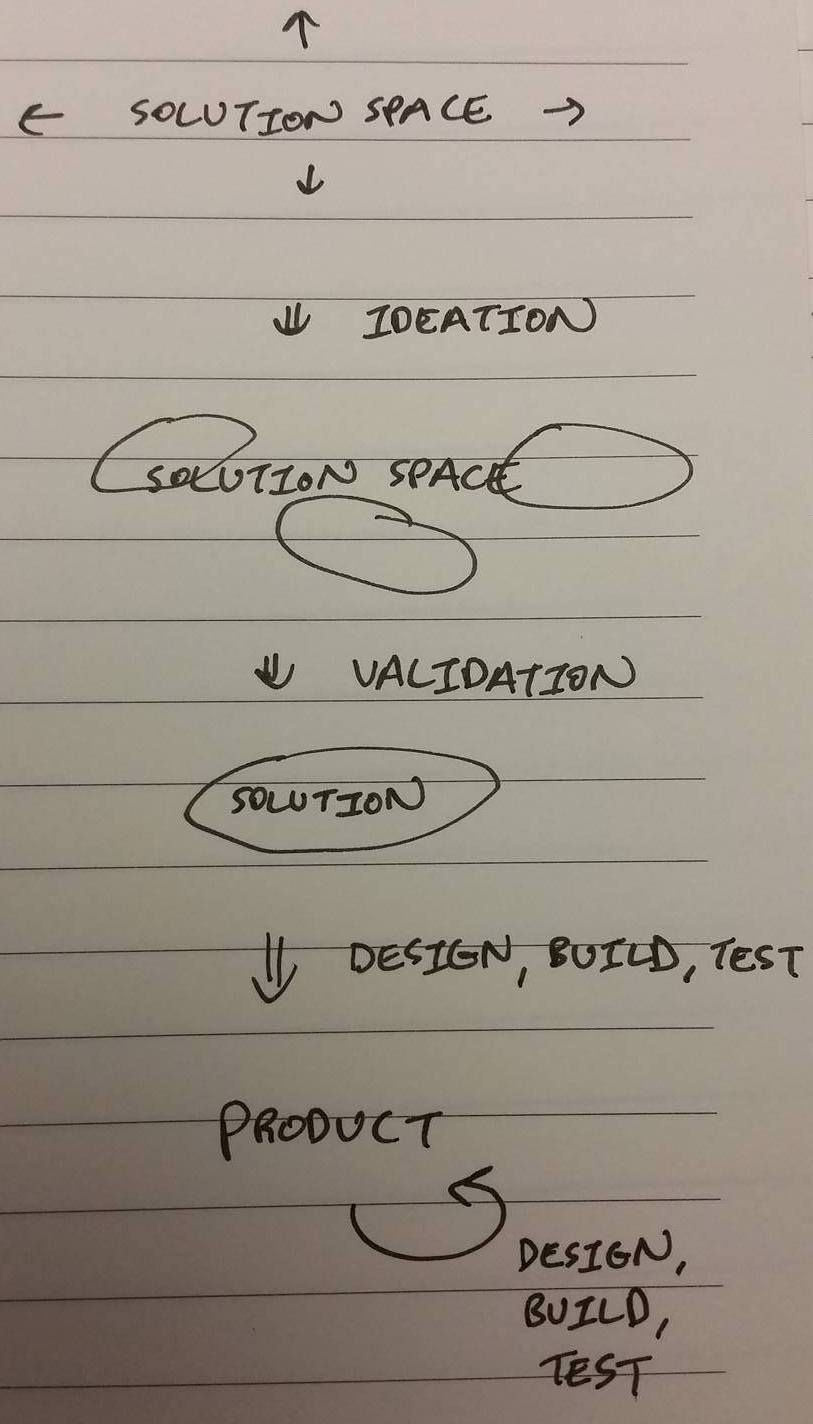 ↑
← SOLUTION SPACE →
↓
⇓ IDEATION
SOLUTION SPACE
⇓ VALIDATION
SOLUTION
⇓ DESIGN, BUILD, TEST
PRODUCT
DESIGN,
BUILD,
TEST